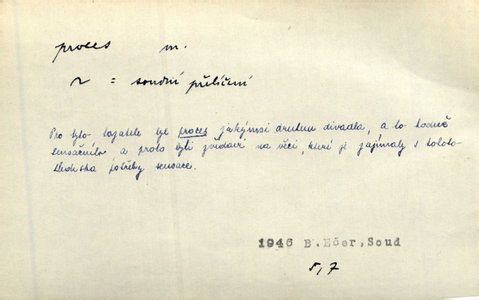 proces m.
~ = soudní přelíčení
Pro tyto bojatele byl proces jakýmsi druhem divadla, a to hodně
sensačního a proto byli zvědaví na věci, které je zajímaly s tohoto
hlediska potřeby sensace.
1946 B. Ečer, Soud
5,7